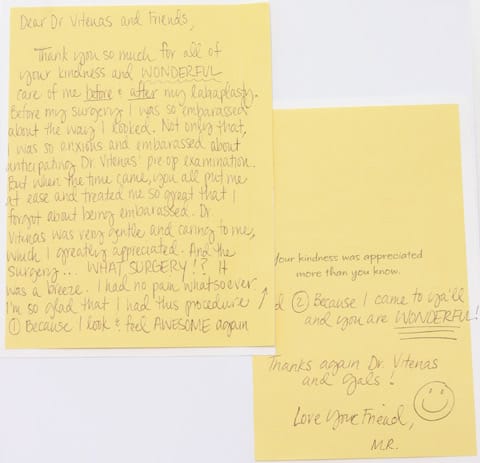 Dear Dr Vitenas and Friends,
Thank you so much for all of
your kindness and WONDERFUL
care of me before & after my labaplasty.
Before my surgery I was so embarassed
about the way I looked. Not only that,
I was so anxious and embarassed about
anticipating Dr Vitenas' pre op examination.
But when the time came, you all put me
at ease and treated me so great that I
forgot about being embarassed. Dr.
Vitenas was very gentle and caring to me,
which I greatly appreciated. And the
surgery... WHAT SURGERY!? It
was a breeze. I had no pain whatsoever.
I'm so glad that I had this procedure
① Because I look & feel AWESOME again
Your kindness was appreciated
more than you know.
② Because I came to ya'll
and you are WONDERFUL!
Thanks again Dr. Vitenas
and Gals!
Love Your Friend,
M.R.